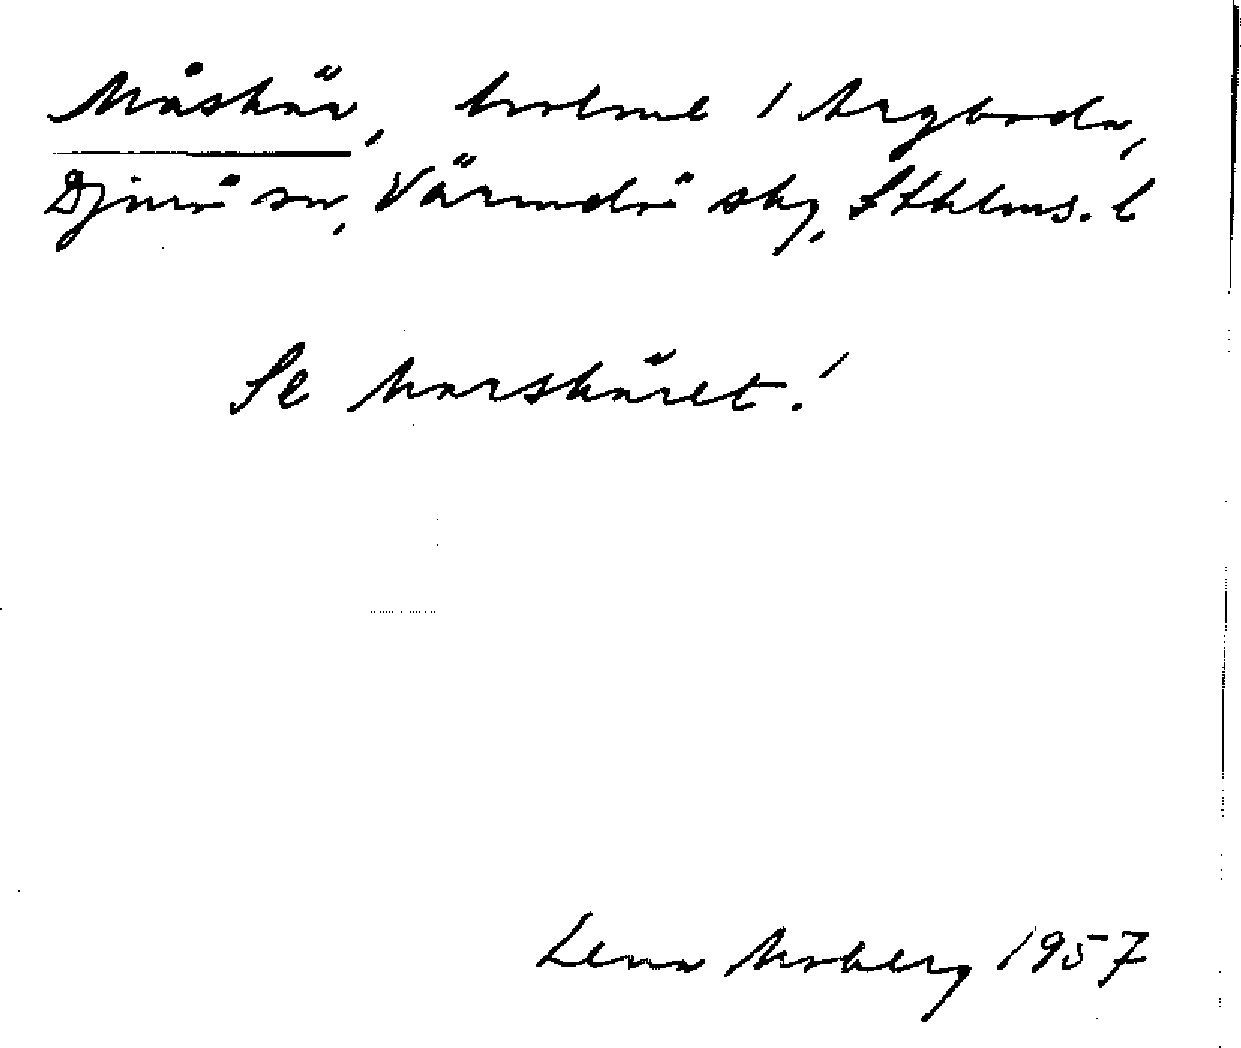 Måskär, holme i
Djurö sn, Värmdö skg, Sthlms. l
Se Marskäret!
Lena Moberg 1957